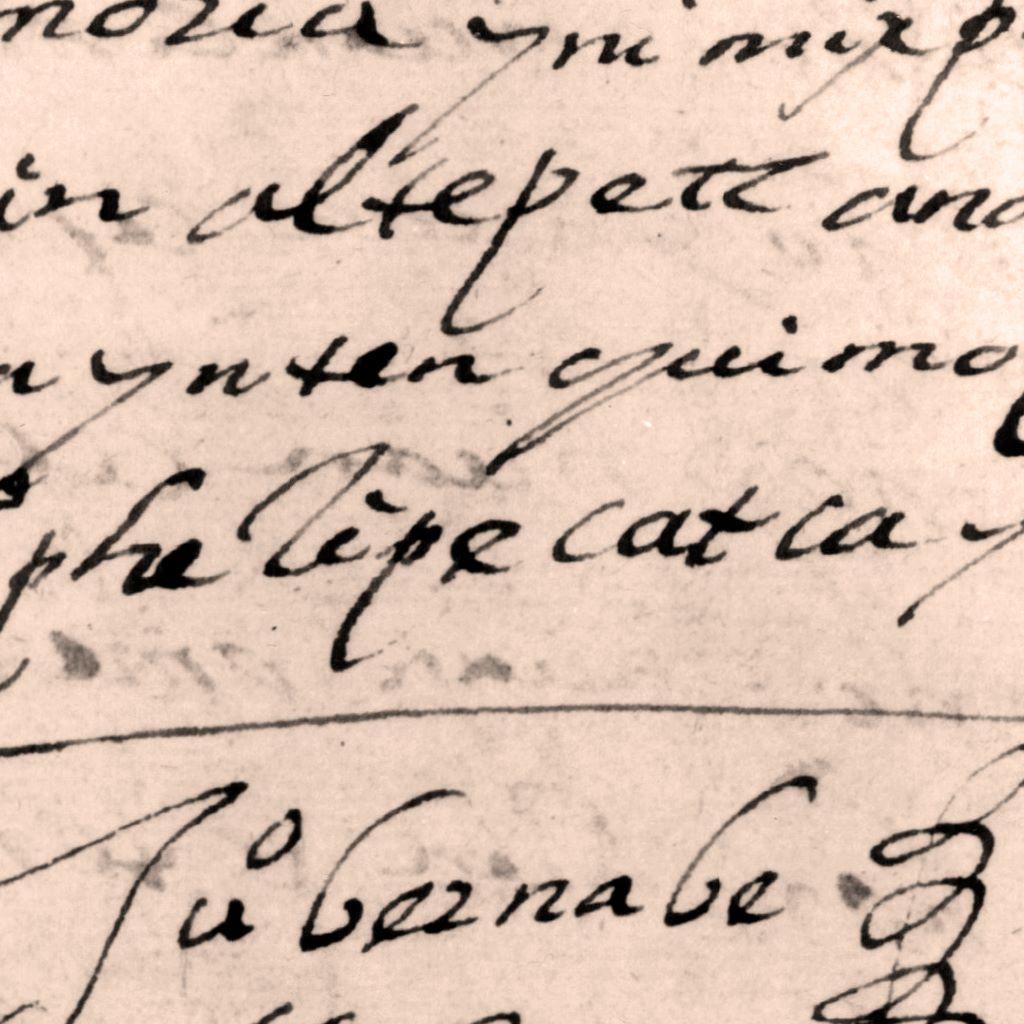 moria yni mixp
in altepetl ano
a ynten quimo
phelipe catca y
Juº bernabe